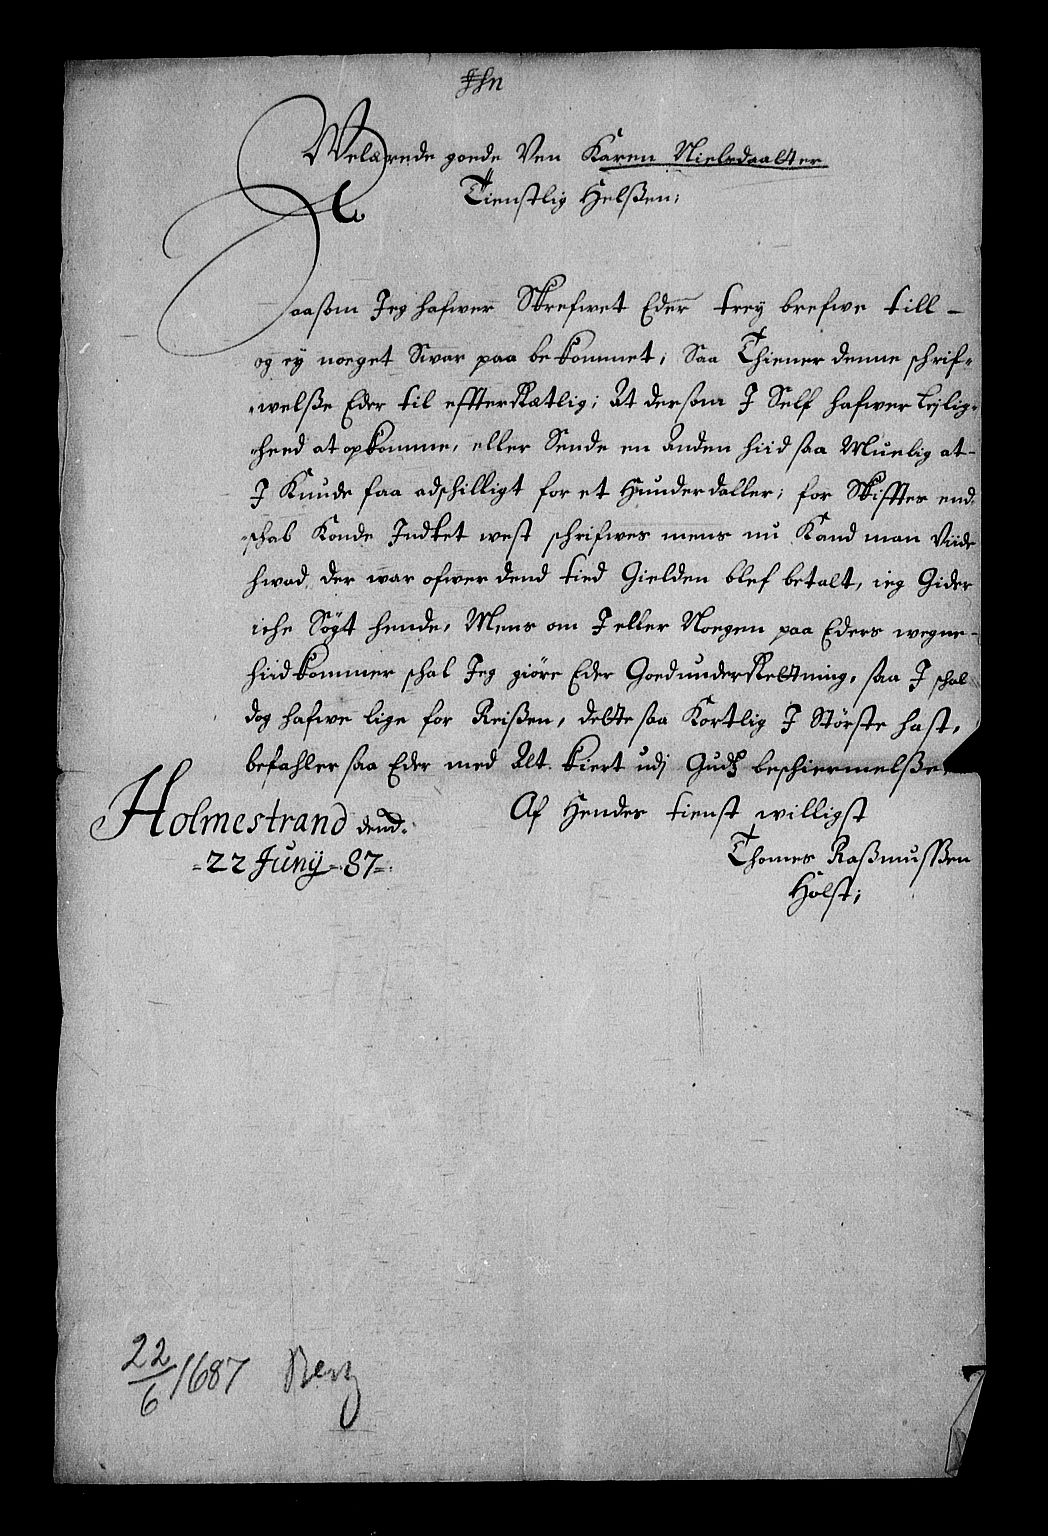 Welærede goede Ven Karen Nielsdaatter
Tienstlig Helßen;
Saasom Jeg hafwer Skrefwet Eder trey brefwe till –
og ey noeget Swar paa bekommet; Saa Thiener denne schrif=
=welße Eder til effterRætlig; At dersom J Self hafwer Lejlig=
=heed at opkomme, eller Sende en Anden hiid saa Muelig at –
J Kunde faa adschilligt for et Hunder daller; for Skifftes end=
=schab Konde Indtet west schrifwes mens nu Kand man Viide
hwad der war ofwer dend tied Gielden blef betalt, ieg Gider
iche Søgt hende, Mens om J eller Noegen paa Eders wegne –
hiid kommer schal Jeg giöre Eder Goed underRettning, saa J schal
dog hafwe lige for Reißen, dette saa Kortlig J Störste hast,
befahler saa Eder med Alt Kiert udj Gudß beschiermelße
Holmestrand dend:
=22 Junij = 87=:
Af Hendes tienst willigst
Thomes Raßmusßen
Holst;
22/6 1687 Berg